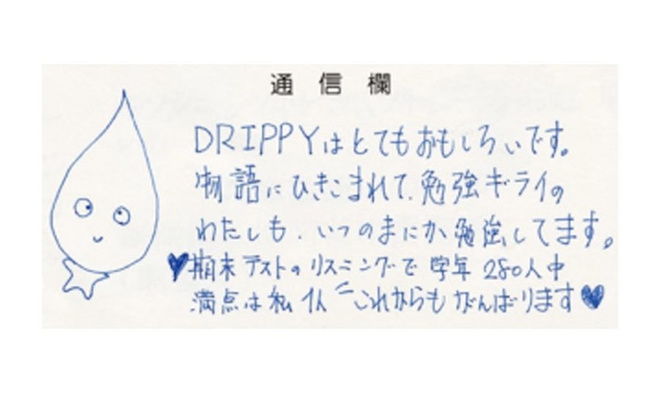 通信欄
DRIPPYはとてもおもしろいです。
物語にひきこまれて、勉強ギライの
わたしも、いつのまにか勉強してます。
♥期末テストのリスニングで 学年 280人中
満点は私1人 これからもがんばります♥